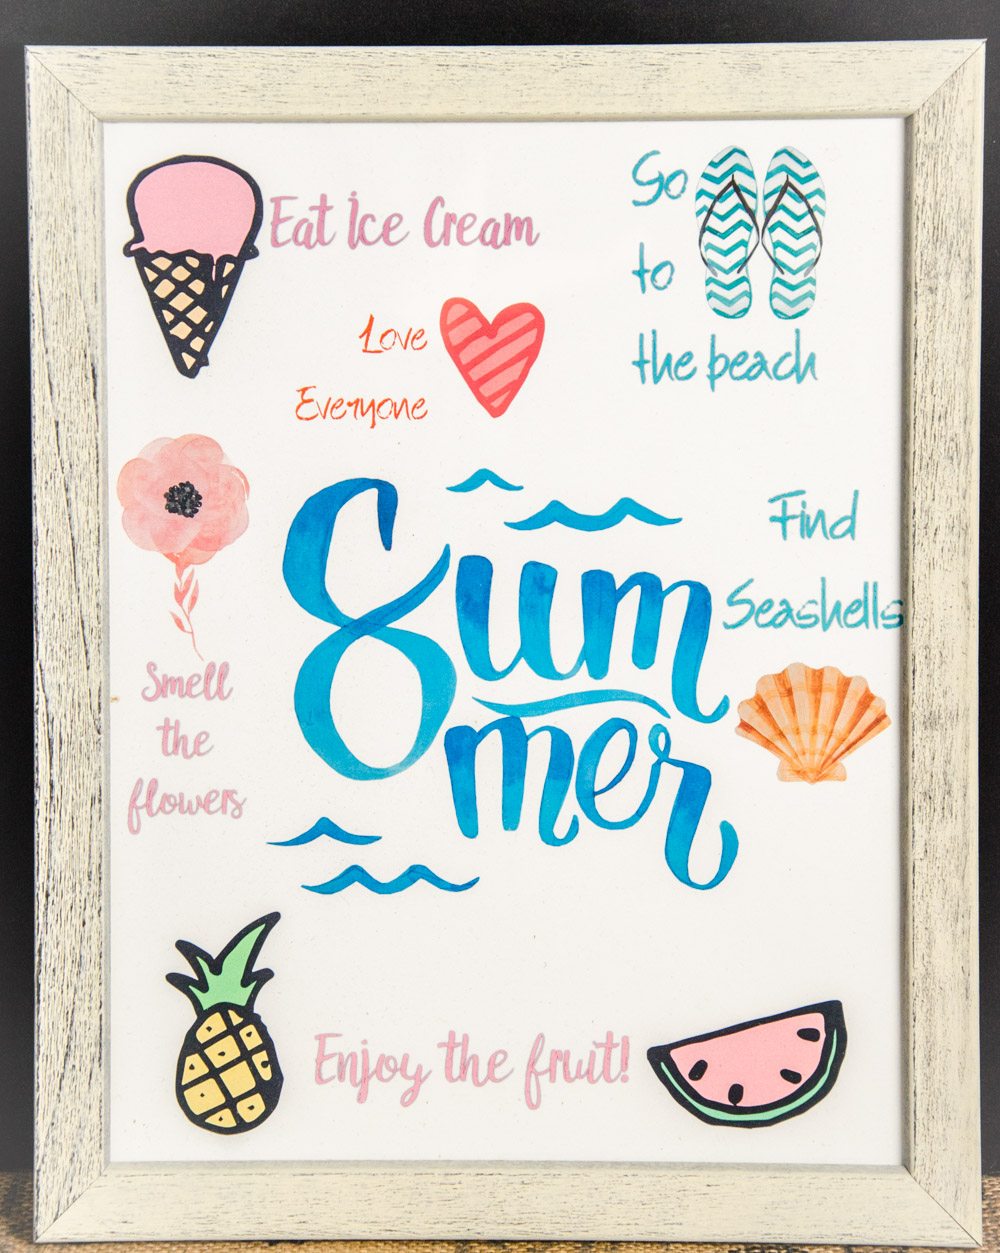 Eat Ice Cream
Go
to
the beach
Love
Everyone
Find
Seashells
Sum
mer
Smell
the
flowers
Enjoy the fruit!